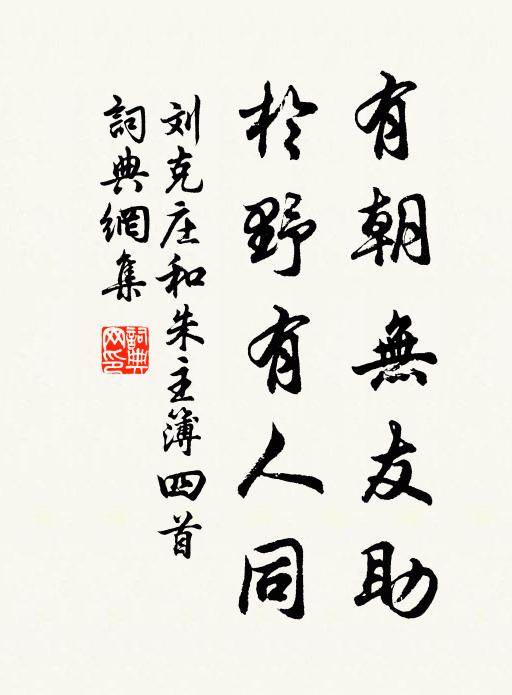 有朝無友助
於野有人同
刘克庄和朱主簿四首
詞典網集
詞典網印